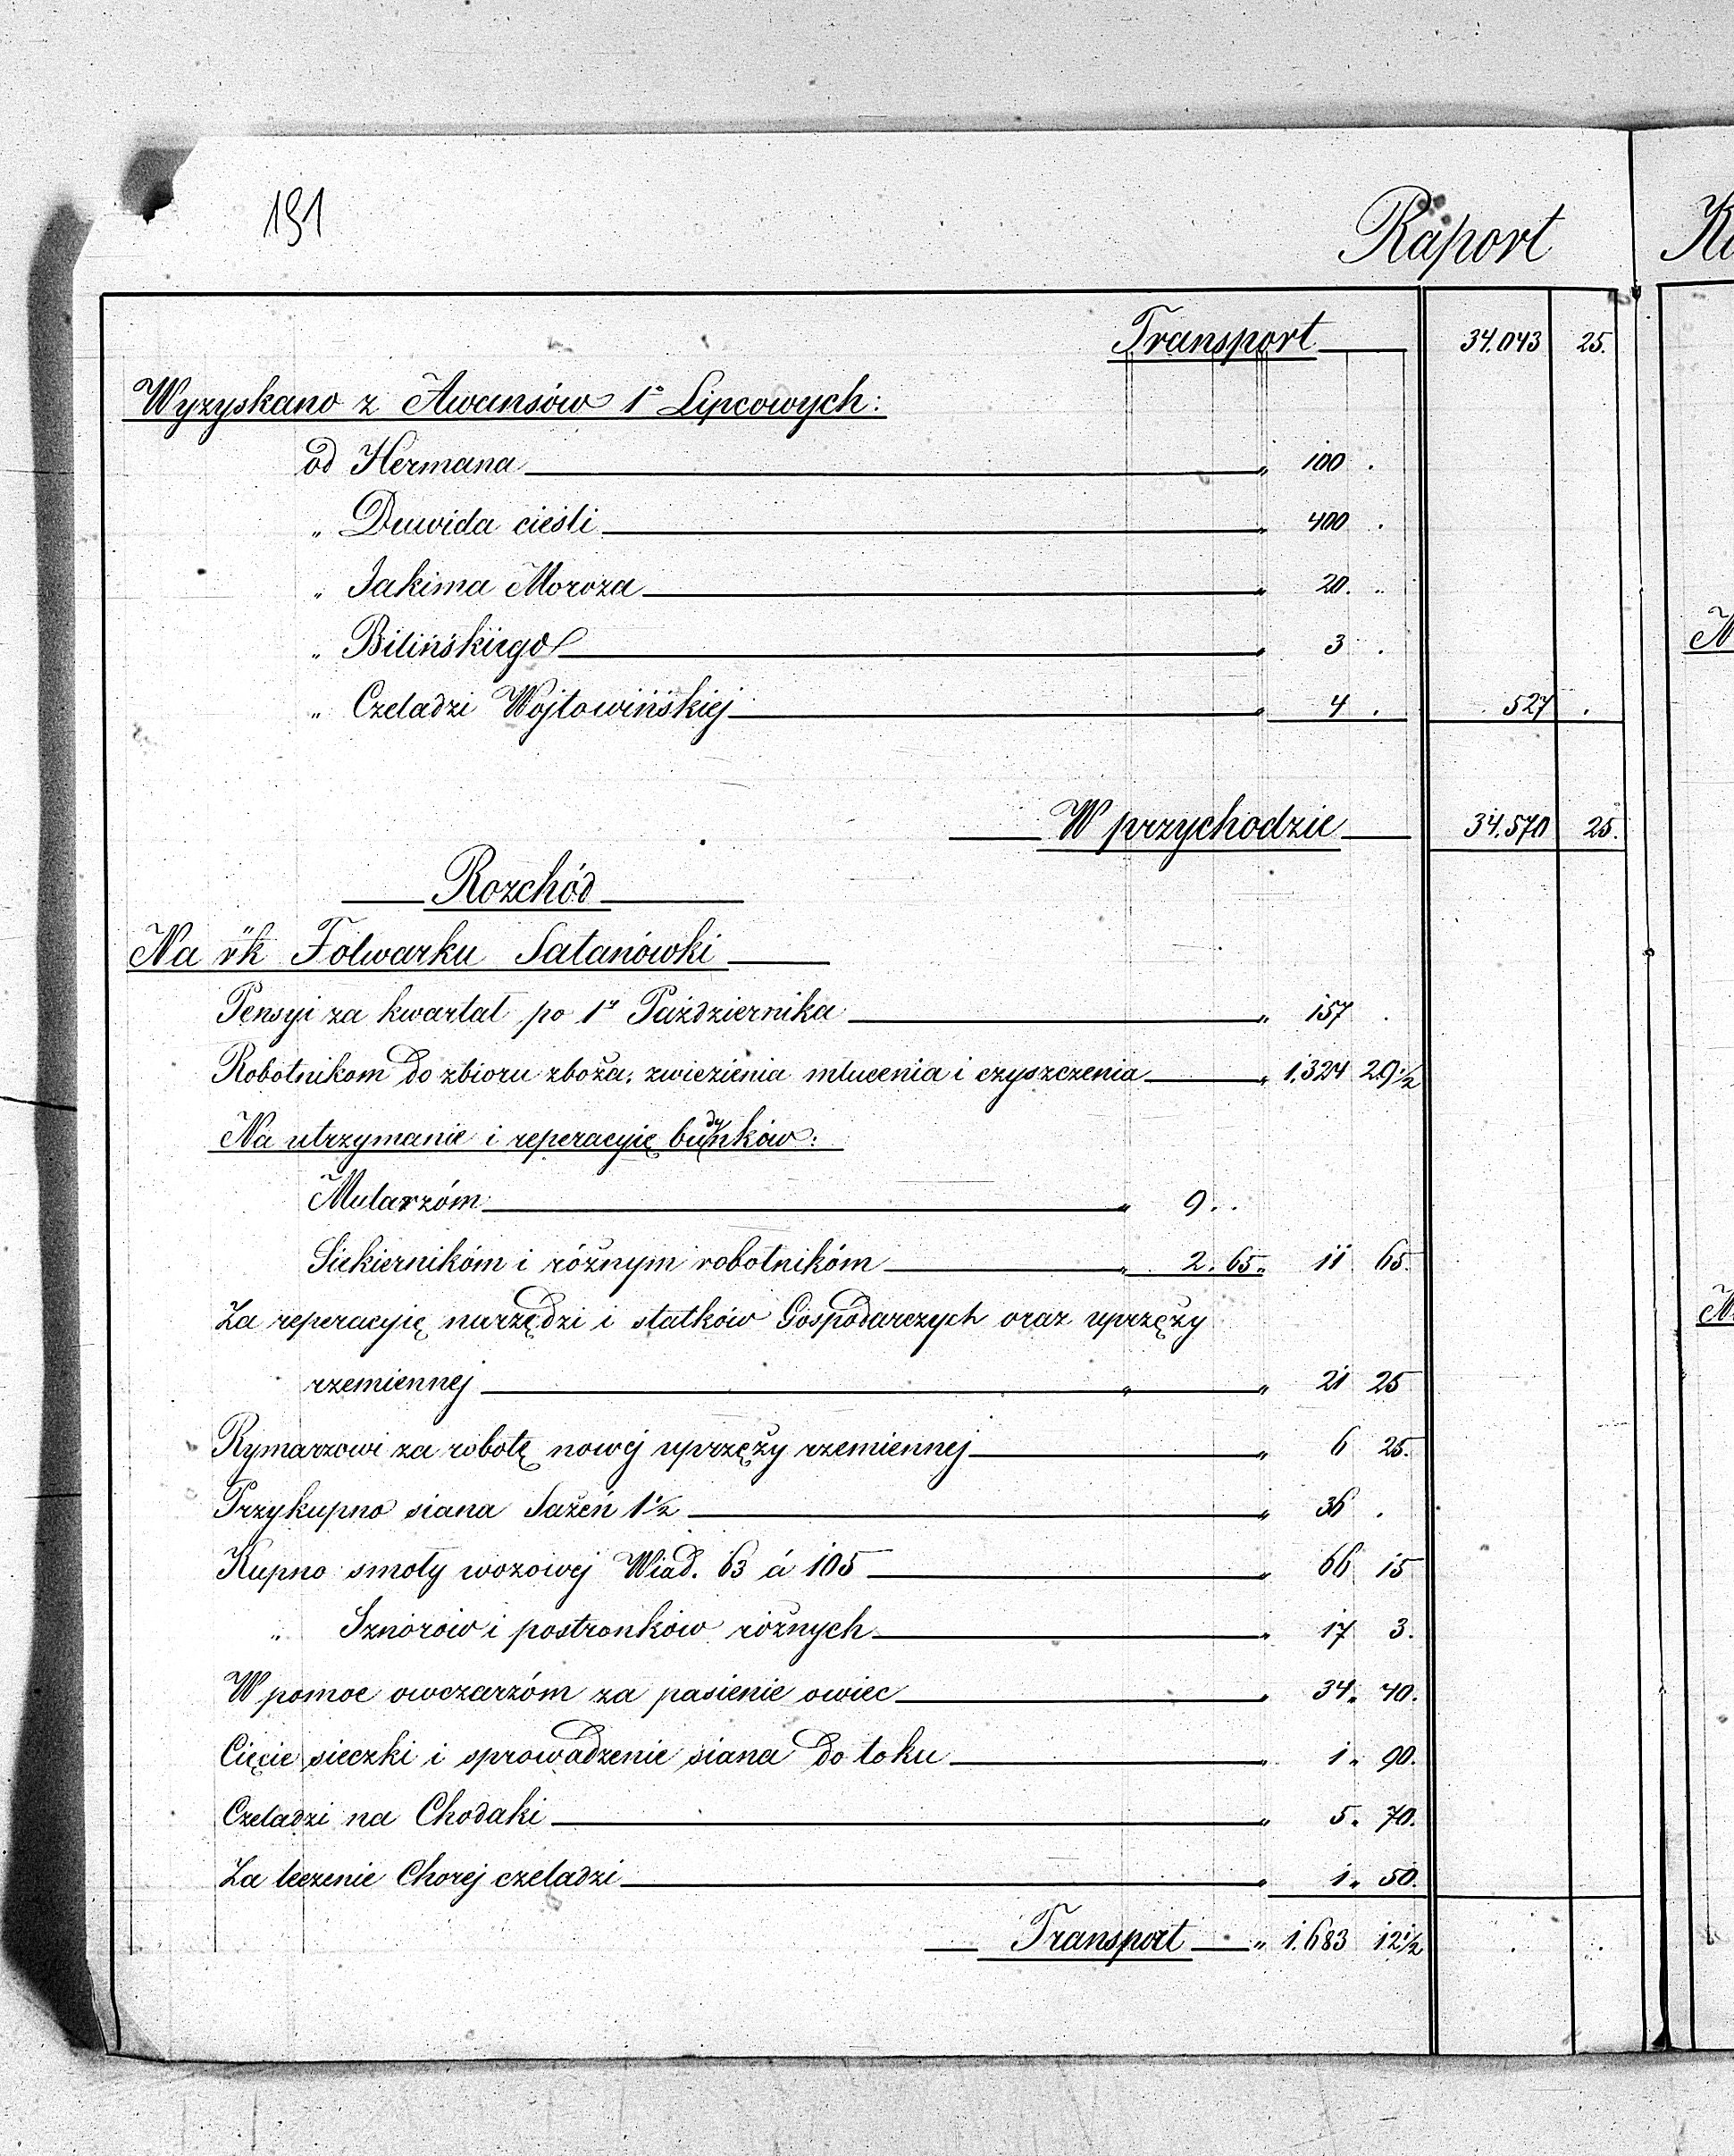 191
Raport
Transport 34.043 25.
Wyzyskano z Awansów 1º Lipcowych:
od Hermana " 100 .
" Dawida cieśli " 400 .
" Jakima Moroza " 20. "
" Bilińskiego " 3 .
" Czeladzi Wojtowińskiej " 4 . 527 .
W przychodzie 34.570 25.
Rozchód
Na rk Folwarku Satanówki
Pensyi za kwartał po 1y Października " 157 .
Robotnikom do zbioru zboża, zwiezienia młucenia i czyszczenia " 1.324 29½
Na utrzymanie i reperacyię budynków:
Mularzóm " 9 . .
Siekiernikóm i róznym robotnikóm " 2. 65 " 11 65.
Za reperacyię narzędzi i statków Gospodarczych oraz uprzęży
rzemiennej " " 21 25
Rymarzowi za robotę nowej uprzęży rzemiennej " 6 25.
Przykupno siana Sażeń 1½ " 36 .
Kupno smoły wozowej Wiad. 63 á 105 " 66 15
" Sznórów i postronków różnych " 17 3.
W pomoc owczarzóm za pasienie owiec " 34 " 40.
Cięcie sieczki i sprowadzenie siana do toku " 1 " 90.
Czeladzi na Chodaki " 5 " 70.
Za leczenie Chorej czeladzi " 1 " 50.
Transport " 1.683 12½ . .